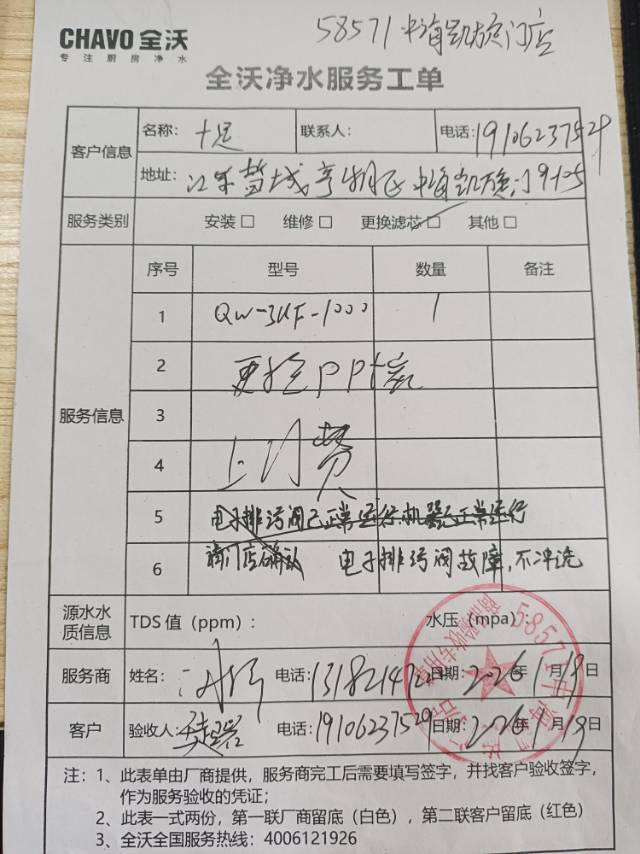 58571 中海凯旋门店
CHAVO 全沃
专注厨房净水
全沃净水服务工单
客户信息
名称: 十足
联系人:
电话: 19106237529
地址: 江苏 中海凯旋门9-105
服务类别
安装 □ 维修 □ 更换滤芯 □ 其他 □
服务信息
序号 型号 数量 备注
1 QW-3UF-1000 1
2 更换PP棉
3
4 上门费
5 电子排污阀已正常运行,机器已正常运行
6 请门店确认 电子排污阀故障,不冲洗
源水水质信息
TDS 值(ppm): 水压(mpa):
服务商 姓名: 电话: 日期: 2026年1月19日
客户 验收人: 电话: 19106237529 日期: 2026年1月19日
注:1、此表单由厂商提供,服务商完工后需要填写签字,并找客户验收签字,
作为服务验收的凭证;
2、此表一式两份,第一联厂商留底(白色),第二联客户留底(红色)
3、全沃全国服务热线:4006121926